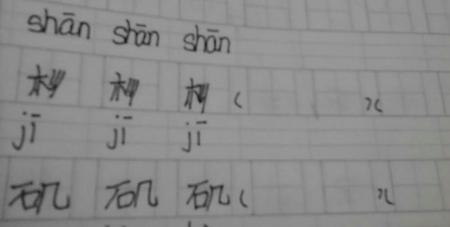 shān shān shān
杉 杉 杉 (    )(
jī jī jī
矶 矶 矶 (    )(